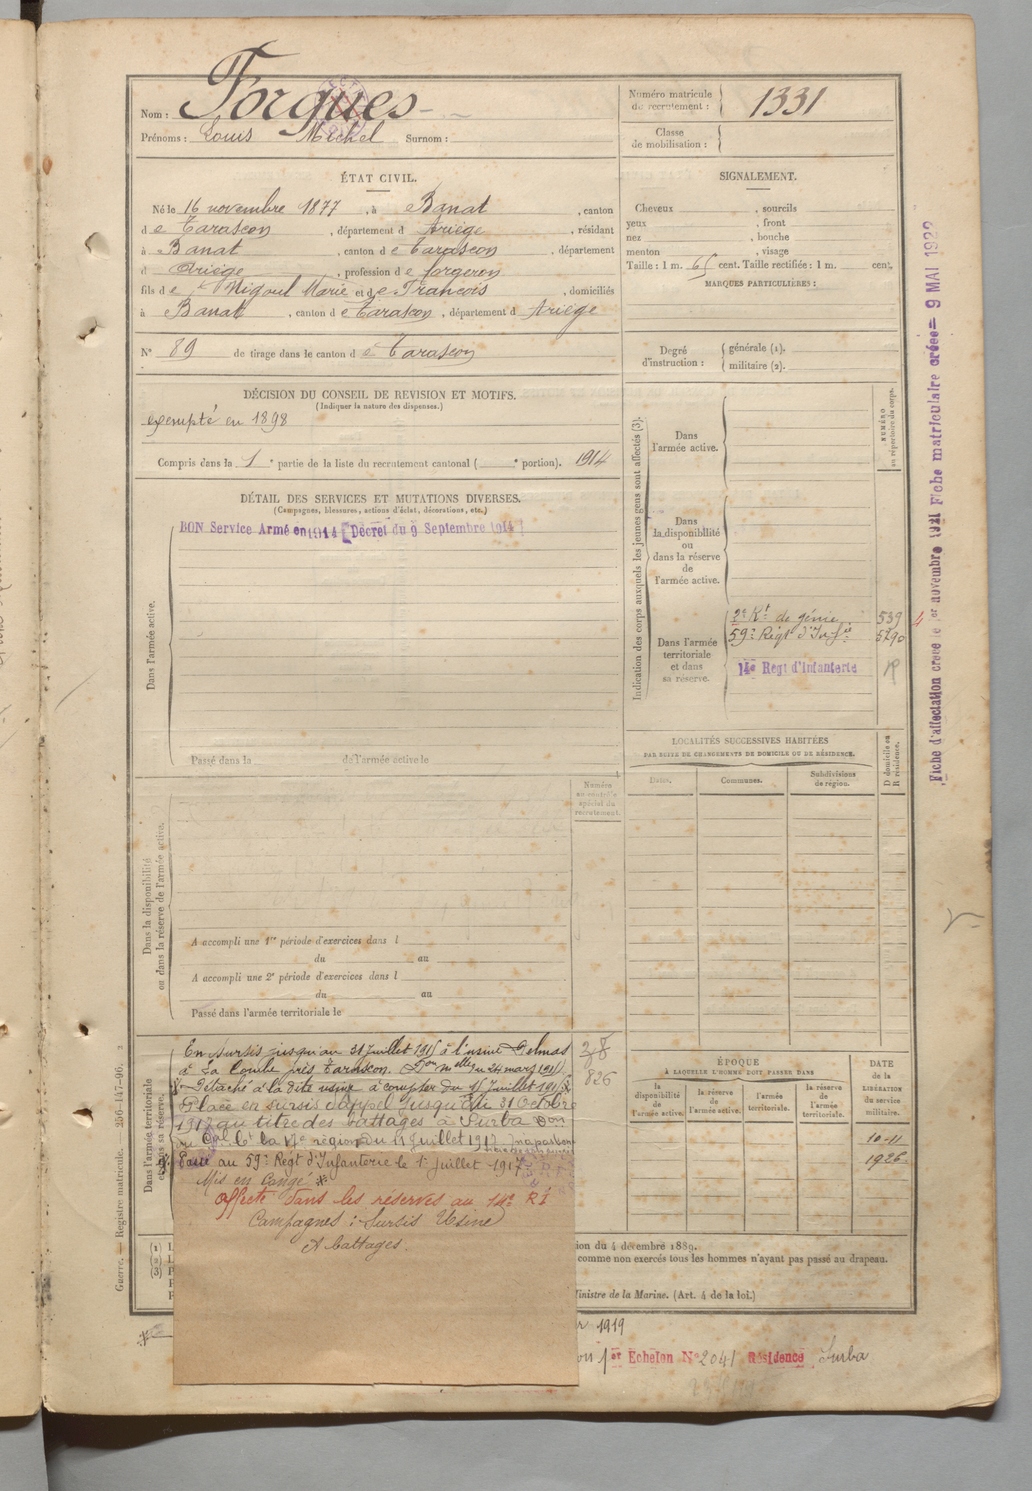 Nom : Forgues
Prénoms : Louis Michel Surnom :
Numéro matricule de recrutement : 1331
Classe de mobilisation :
ÉTAT CIVIL.
Né le 16 novembre 1877, à Banat, canton
d e Tarascon, département d Ariège, résidant
à Banat, canton d e Tarascon, département
d Ariège, profession d e forgeron
fils d e Migoul Marie et d e François, domiciliés
à Banat, canton d e Tarascon, département d Ariège
N° 89 de tirage dans le canton d e Tarascon
SIGNALEMENT.
Cheveux , sourcils
yeux , front
nez , bouche
menton , visage
Taille : 1 m. 65 cent. Taille rectifiée : 1 m. cent.
MARQUES PARTICULIÈRES :
Degré d'instruction : générale (1).
militaire (2).
DÉCISION DU CONSEIL DE REVISION ET MOTIFS.
(Indiquer la nature des dispenses.)
exempté en 1898
Compris dans la 1e partie de la liste du recrutement cantonal ( e portion). 1914
DÉTAIL DES SERVICES ET MUTATIONS DIVERSES.
(Campagnes, blessures, actions d'éclat, décorations, etc.)
BON Service Armé en 1914 [Décret du 9 Septembre 1914]
Dans l'armée active.
Passé dans la de l'armée active le
Dans la disponibilité
ou dans la réserve de l'armée active.
Numéro
au contrôle
spécial du
recrutement.
A accompli une 1re période d'exercices dans l
du au
A accompli une 2e période d'exercices dans l
du au
Passé dans l'armée territoriale le
Dans l'armée territoriale
et dans sa réserve.
En sursis jusqu'au 31 Juillet 1915 à l'usine Delmas
à La Combe près Tarascon. Don Mlle du 24 mars 1915
Détaché à la dite usine à compter du 15 Juillet 1915
Placé en sursis d'appel jusqu'au 31 Octobre
1917 au titre des battages à Surba Don
la 17e région du 11 Juillet 1917.
Passé au 59e Régt d'Infanterie le 1er juillet 1917
Mis en Congé *
affecté dans les réserves au 14e R.I
Campagnes : Sursis Usine
A battages.
826
Indication des corps auxquels les jeunes gens sont affectés (3).
NUMÉRO
au répertoire du corps.
Dans
l'armée active.
Dans
la disponibilité
ou
dans la réserve
de
l'armée active.
Dans l'armée
territoriale
et dans
sa réserve.
2e Rt de génie. 539
59e Régt d'Infie 5290
14e Regt d'Infanterie R
LOCALITÉS SUCCESSIVES HABITÉES
PAR SUITE DE CHANGEMENTS DE DOMICILE OU DE RÉSIDENCE.
Dates. Communes. Subdivisions de région.
D domicile ou
R résidence.
ÉPOQUE
À LAQUELLE L'HOMME DOIT PASSER DANS
la disponibilité de l'armée active.
la réserve de l'armée active.
l'armée territoriale.
la réserve de l'armée territoriale.
DATE
de la
LIBÉRATION
du service
militaire.
10-11
1926
Fiche d'affectation créée le 1er novembre 1921 Fiche matriculaire créée = 9 MAI 1922
Guerre. — Registre matricule. — 286-147-96.
(1)
(2)
(3)
ion du 4 décembre 1889.
comme non exercés tous les hommes n'ayant pas passé au drapeau.
Ministre de la Marine. (Art. 4 de la loi.)
1919
1er Echelon N° 2041 Résidence Surba